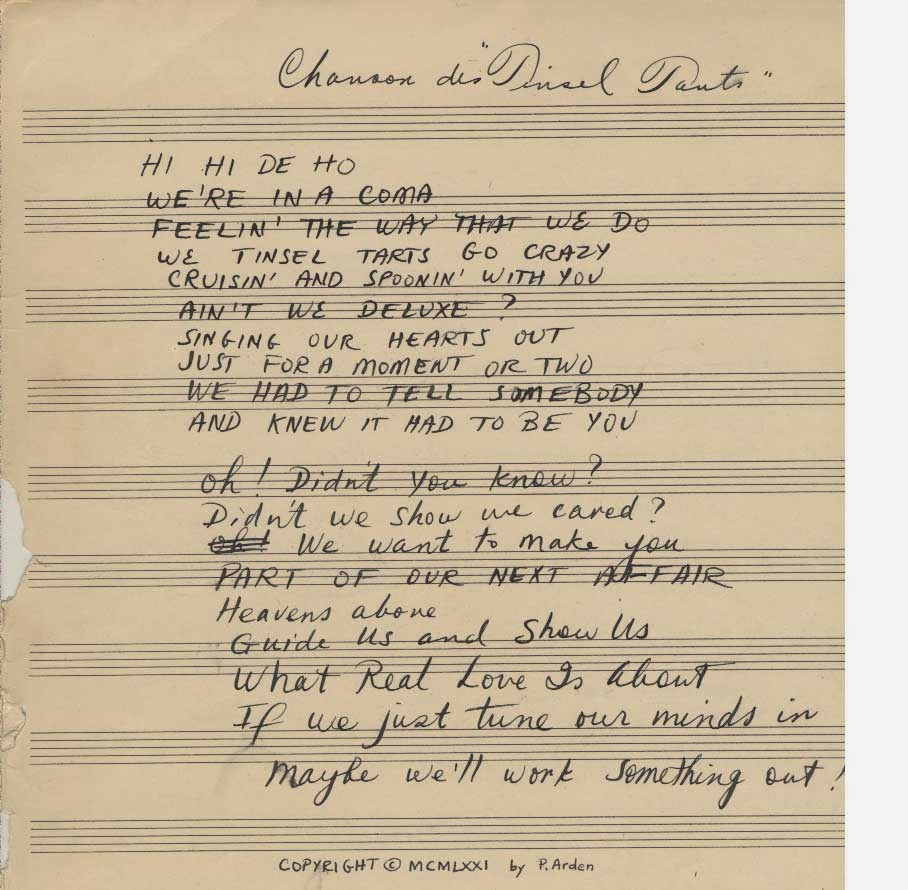 Chanson des "Tinsel Tarts"
HI HI DE HO
WE'RE IN A COMA
FEELIN' THE WAY THAT WE DO
WE TINSEL TARTS GO CRAZY
CRUISIN' AND SPOONIN' WITH YOU
AIN'T WE DELUXE?
SINGING OUR HEARTS OUT
JUST FOR A MOMENT OR TWO
WE HAD TO TELL SOMEBODY
AND KNEW IT HAD TO BE YOU
Oh! Didn't you know?
Didn't we show we cared?
Oh! We want to make you
PART OF OUR NEXT AFFAIR
Heavens above
Guide Us and Show Us
What Real Love Is About
If we just tune our minds in
Maybe we'll work something out!
COPYRIGHT © MCMLXXI by P. Arden